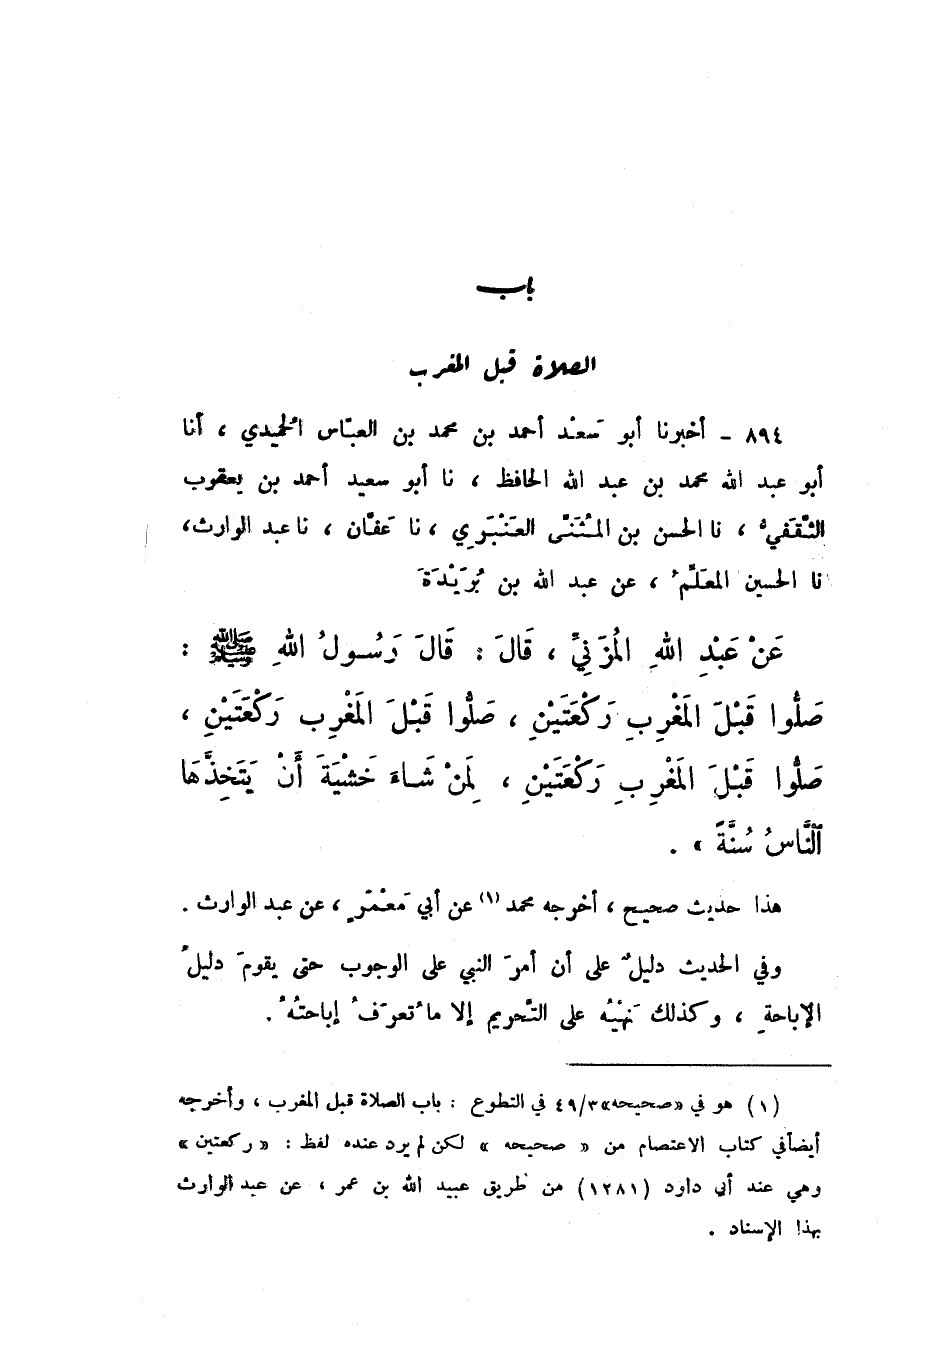 باب
الصلاة قبل المغرب
٨٩٤ - أخبرنا أبو سَعْد أحمد بن محمد بن العبّاس الحُميدي ، أنا
أبو عبد الله محمد بن عبد الله الحافظ ، نا أبو سعيد أحمد بن يعقوب
الثَّقَفيُّ ، نا الحسن بن المُثَنَّى العَنْبَرِي ، نا عَفَّان ، نا عبد الوارث،
نا الحسين المعَلِّمُ ، عن عبد الله بن بُرَيْدَةَ
عَنْ عَبْدِ اللهِ المُزَنِيِّ ، قَالَ : قَالَ رَسُولُ اللهِ ﷺ :
صَلُّوا قَبْلَ المَغْرِبِ رَكْعَتَيْنِ ، صَلُّوا قَبْلَ المَغْرِبِ رَكْعَتَيْنِ ،
صَلُّوا قَبْلَ المَغْرِبِ رَكْعَتَيْنِ ، لِمَنْ شَاءَ خَشْيَةَ أَنْ يَتَخِذَّهَا
النَّاسُ سُنَّةً » .
هذا حديث صحيح ، أخرجه محمد (١) عن أبي مَعْمَرٍ ، عن عبد الوارث .
وفي الحديث دليلٌ على أن أمرَ النبي على الوجوب حتى يقومَ دليلُ
الإباحةِ ، وكذلك نَهْيُه على التَّحريم إلا ما تُعرَفُ إباحتُهُ .
(١) هو في «صحيحه» ٤٩/٣ في التطوع : باب الصلاة قبل المغرب ، وأخرجه
أيضاً في كتاب الاعتصام من « صحيحه » لكن لم يرد عنده لفظ : « ركعتين »
وهي عند أبي داود (١٢٨١) من طريق عبيد الله بن عمر ، عن عبد الوارث
بهذا الإسناد .